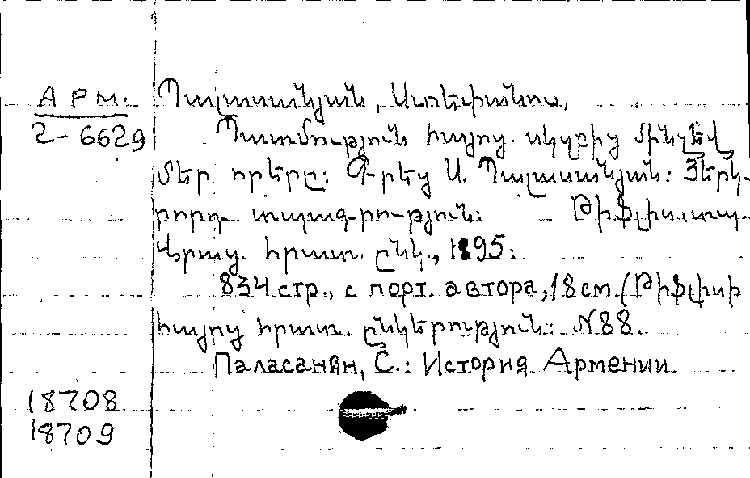 АРМ.
2-6629
Պալասանյան, Ստեփանոս,
Պատմություն հայոց. սկզբից մինչեվ
մեր որերը: Գրեց Ս. Պալասանյան: Յերկ-
րորդ տպագրություն: – Թիֆլիս, տպ.
Վրաց. հրատ. ընկ., 1895:
834 стр., с порт. автора, 18 см. (Թիֆլիսի
հայոց հրատ. ընկերություն: N88.
Паласанян, С.: История Армении.
18708
18709